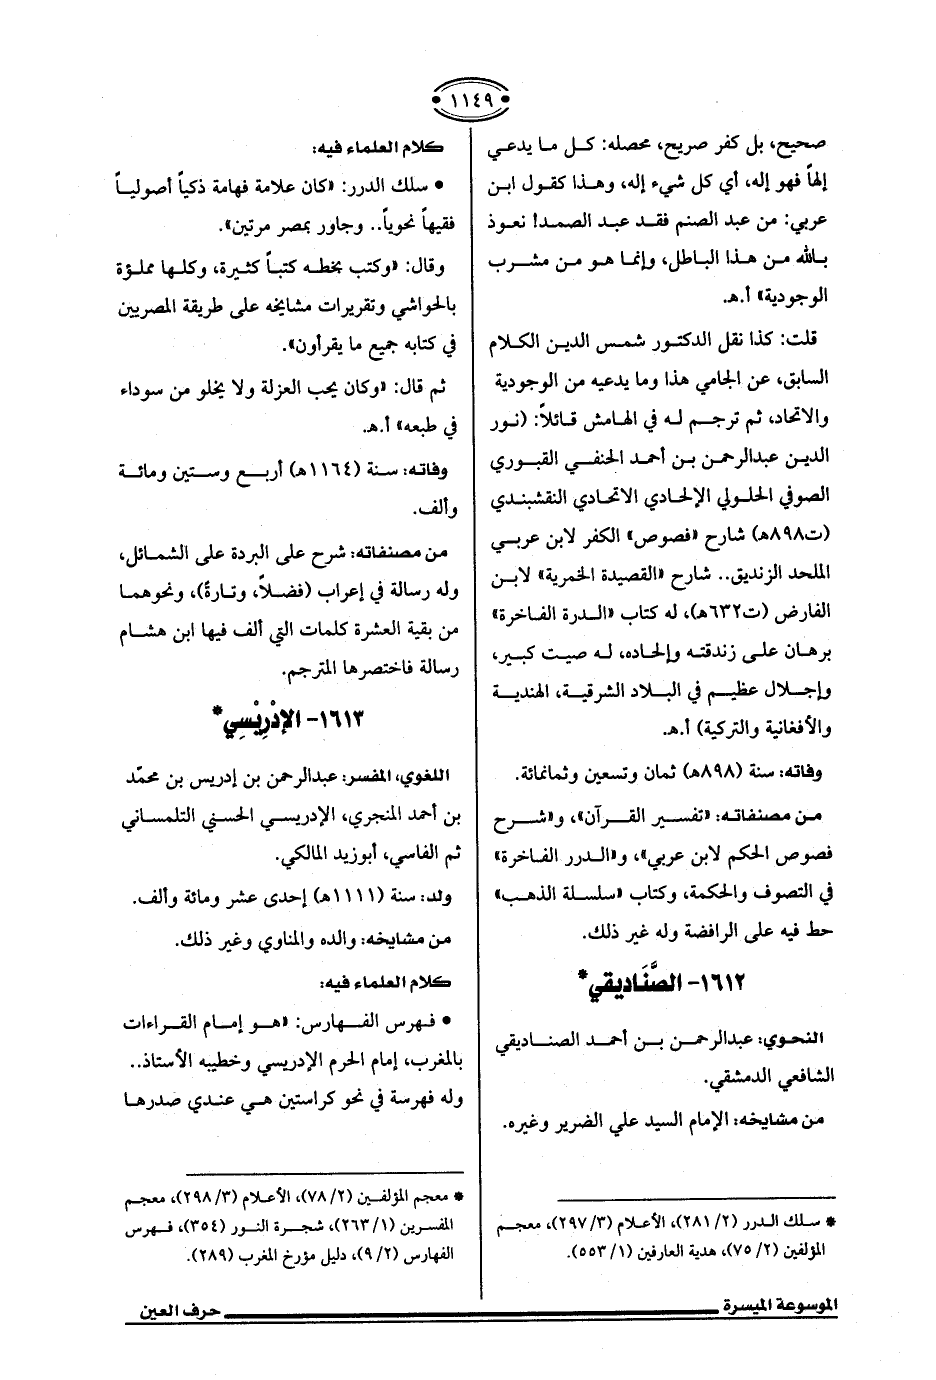 ١١٤٩
صحيح، بل كفر صريح، محصله: كل ما يدعي
إلهاً فهو إله، أي كل شيء إله، وهذا كقول ابن
عربي: من عبد الصنم فقد عبد الصمد! نعوذ
بالله من هذا الباطل، وإنما هو من مشرب
الوجودية» أ.هـ.
قلت: كذا نقل الدكتور شمس الدين الكلام
السابق، عن الجامي هذا وما يدعيه من الوجودية
والاتحاد، ثم ترجم له في الهامش قائلاً: (نور
الدين عبدالرحمن بن أحمد الحنفي القبوري
الصوفي الحلولي الإلحادي الاتحادي النقشبندي
(ت٨٩٨هـ) شارح «فصوص» الكفر لابن عربي
الملحد الزنديق.. شارح «القصيدة الخمرية» لابن
الفارض (ت٦٣٢هـ)، له كتاب «الدرة الفاخرة»
برهان على زندقته وإلحاده، له صيت كبير،
وإجلال عظيم في البلاد الشرقية، الهندية
والأفغانية والتركية) أ.هـ.
وفاته: سنة (٨٩٨هـ) ثمان وتسعين وثمانمائة.
من مصنفاته: «تفسير القرآن»، و«شرح
فصوص الحكم لابن عربي»، و«الدرر الفاخرة»
في التصوف والحكمة، وكتاب «سلسلة الذهب»
حط فيه على الرافضة وله غير ذلك.
١٦١٢- الصَّنَاديقي*
النحوي: عبدالرحمن بن أحمد الصناديقي
الشافعي الدمشقي.
من مشايخه: الإمام السيد علي الضرير وغيره.
* سلك الدرر (٢/ ٢٨١)، الأعلام (٣/ ٢٩٧)، معجم
المؤلفين (٢/ ٧٥)، هدية العارفين (١/ ٥٥٣).
كلام العلماء فيه:
• سلك الدرر: «كان علامة فهامة ذكياً أصولياً
فقيهاً نحوياً.. وجاور بمصر مرتين».
وقال: «وكتب بخطه كتباً كثيرة، وكلها مملؤة
بالحواشي وتقريرات مشايخه على طريقة المصريين
في كتابه جميع ما يقرأون».
ثم قال: «وكان يحب العزلة ولا يخلو من سوداء
في طبعه» أ.هـ.
وفاته: سنة (١١٦٤هـ) أربع وستين ومائة
وألف.
من مصنفاته: شرح على البردة على الشمائل،
وله رسالة في إعراب (فضلاً، وتارةً)، ونحوهما
من بقية العشرة كلمات التي ألف فيها ابن هشام
رسالة فاختصرها المترجم.
١٦١٣- الإدْرِيْسِي*
اللغوي، المفسر: عبدالرحمن بن إدريس بن محمّد
بن أحمد المنجري، الإدريسي الحسني التلمساني
ثم الفاسي، أبوزيد المالكي.
ولد: سنة (١١١١هـ) إحدى عشر ومائة وألف.
من مشايخه: والده والمناوي وغير ذلك.
كلام العلماء فيه:
• فهرس الفهارس: «هو إمام القراءات
بالمغرب، إمام الحرم الإدريسي وخطيبه الأستاذ..
وله فهرسة في نحو كراستين هي عندي صدرها
* معجم المؤلفين (٢/ ٧٨)، الأعلام (٣/ ٢٩٨)، معجم
المفسرين (١/ ٢٦٣)، شجرة النور (٣٥٤)، فهرس
الفهارس (٢/ ٩)، دليل مؤرخ المغرب (٢٨٩).
الموسوعة الميسرة
حرف العين